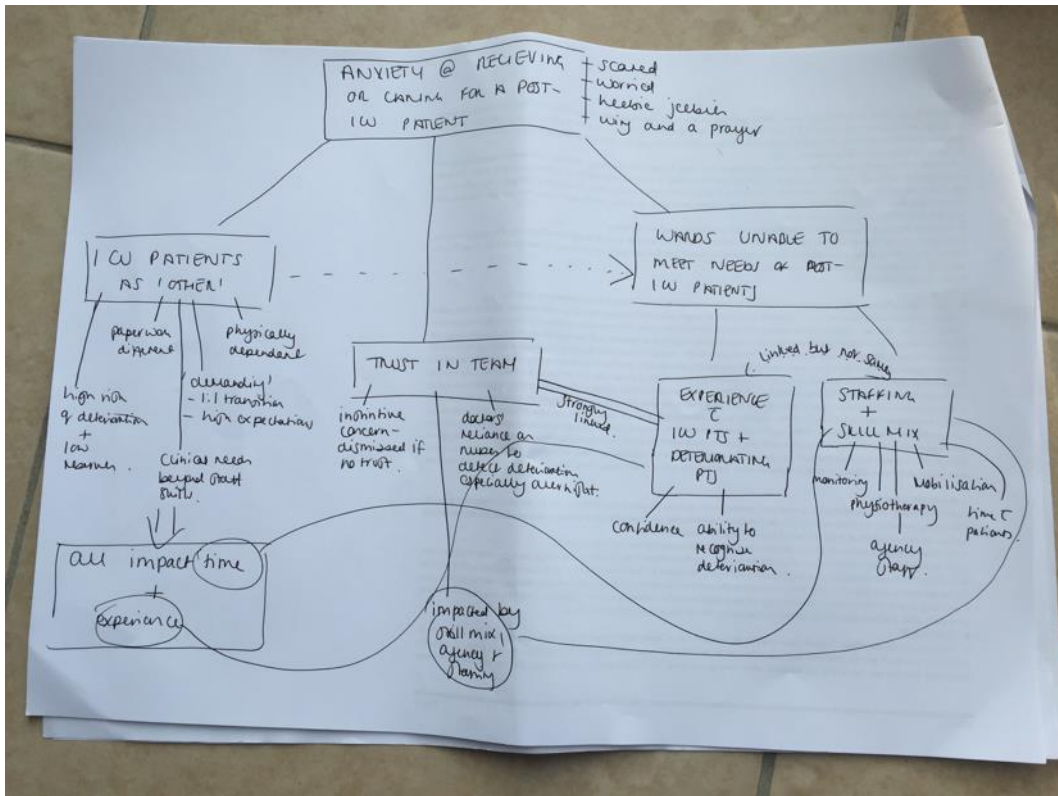 ANXIETY @ RECIEVING
OR CARING FOR A POST-
ICU PATIENT
scared
worried
heebie jeebies
wing and a prayer
ICU PATIENTS
AS 'OTHER'
WARDS UNABLE TO
MEET NEEDS OF POST-
ICU PATIENTS
paperwork
different
physically
dependent
high risk
of deterioration
+
low
reserves.
'demanding'
- 1:1 transition
- high expectations
Clinical needs
beyond staff
skills.
TRUST IN TEAM
instinctive
concern-
dismissed if
no trust.
doctors'
reliance on
nurses to
detect deterioration
especially overnight.
Strongly
linked.
Linked but not same
EXPERIENCE
C
ICU PTS +
DETERIORATING
PTS
STAFFING
+
SKILL MIX
monitoring
physiotherapy
Mobilisation
time c
patients.
agency
staff.
Confidence
ability to
recognise
deterioration.
all impact time
+
experience
impacted by
skill mix,
agency +
staffing